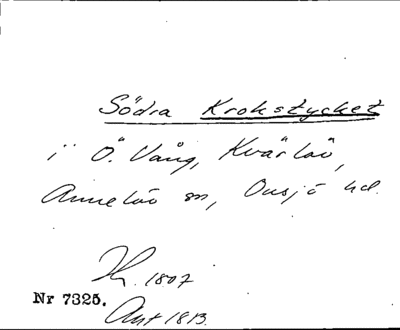 Södra Krokstycket
i Ö. Vång, Kvärlöv,
Annelöv sn, Onsjö hd.
1807
Nr 7325.
Akt 1813.